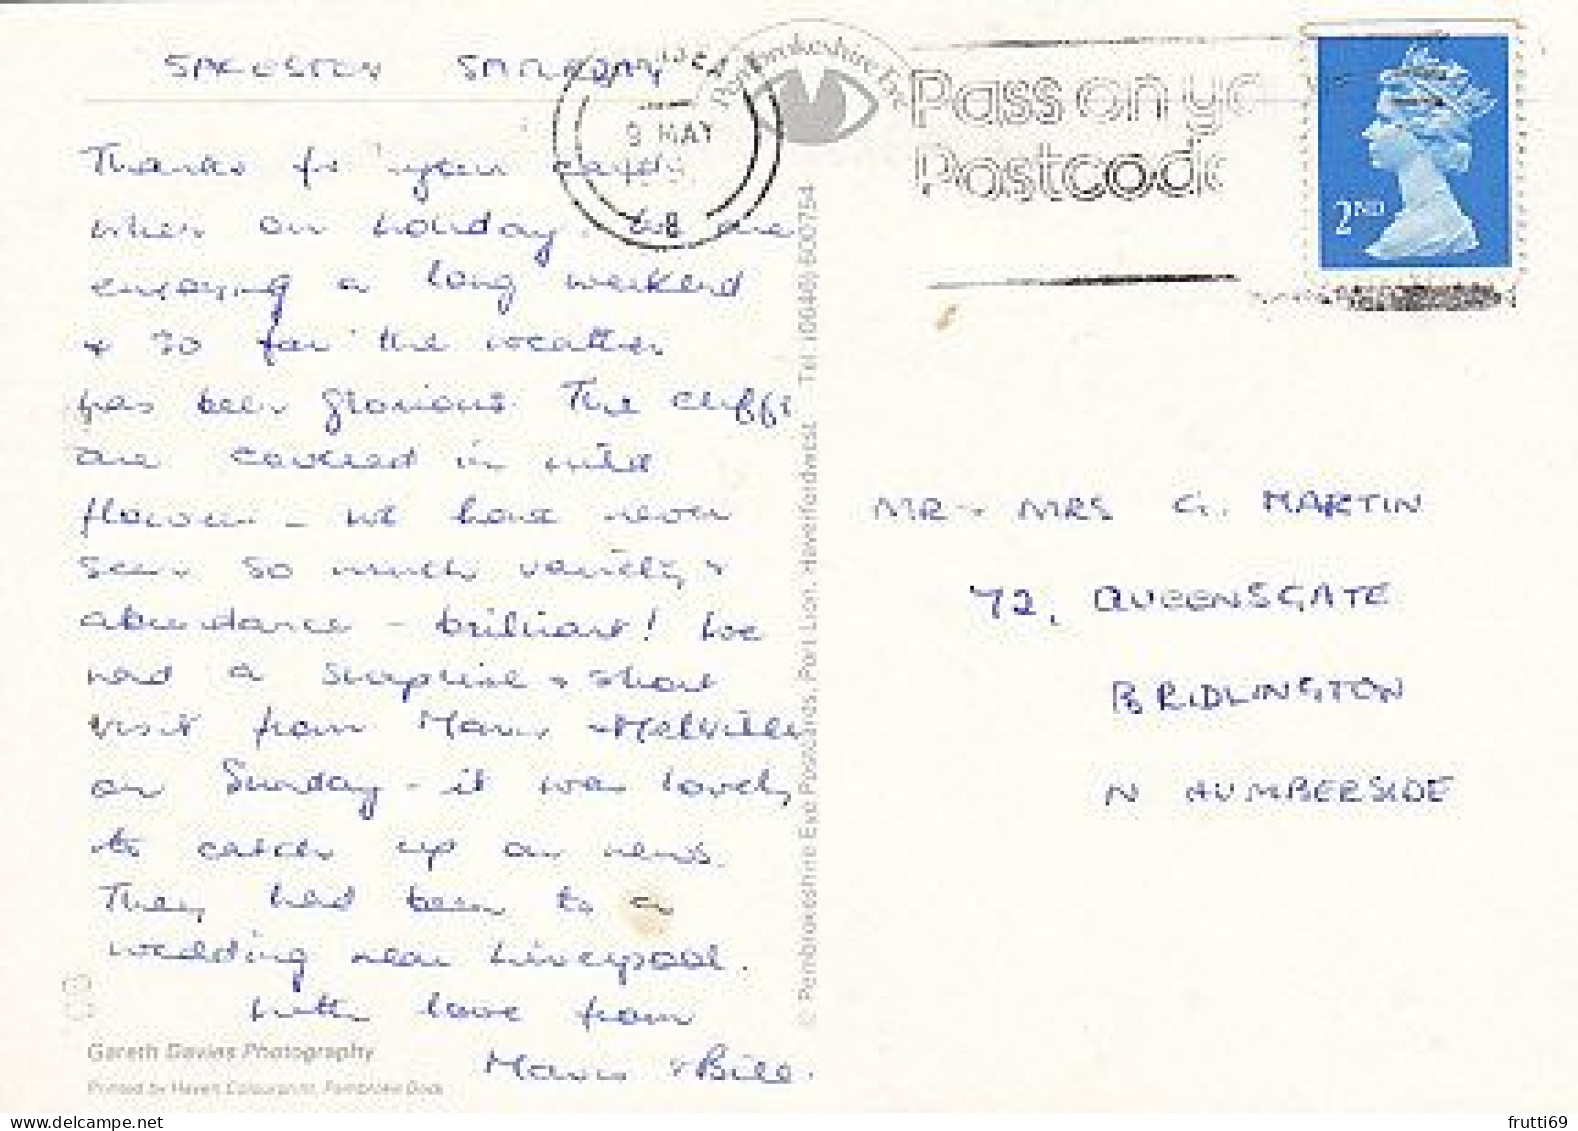 SAGESTON SATURDAY
Thanks for your cards
when on holiday. We are
enjoying a long weekend
& so far the weather
has been glorious. The cliffs
are covered in wild
flowers - we have never
seen so much variety &
abundance - brilliant! We
had a surprise & short
visit from Mavis & Melville
on Sunday - it was lovely
to catch up on news.
They had been to a
wedding near Liverpool.
With love from
Mavis & Bill.
Gareth Davies Photography
Printed by Haven Colourprint, Pembroke Dock
© Pembrokeshire Eye Postcards, Port Lion, Haverfordwest. Tel. (0646) 600754
Pembrokeshire Eye
9 MAY
Pass on yo
Postcode
2ND
MR & MRS G. MARTIN
72, QUEENSGATE
BRIDLINGTON
N HUMBERSIDE
frutti69